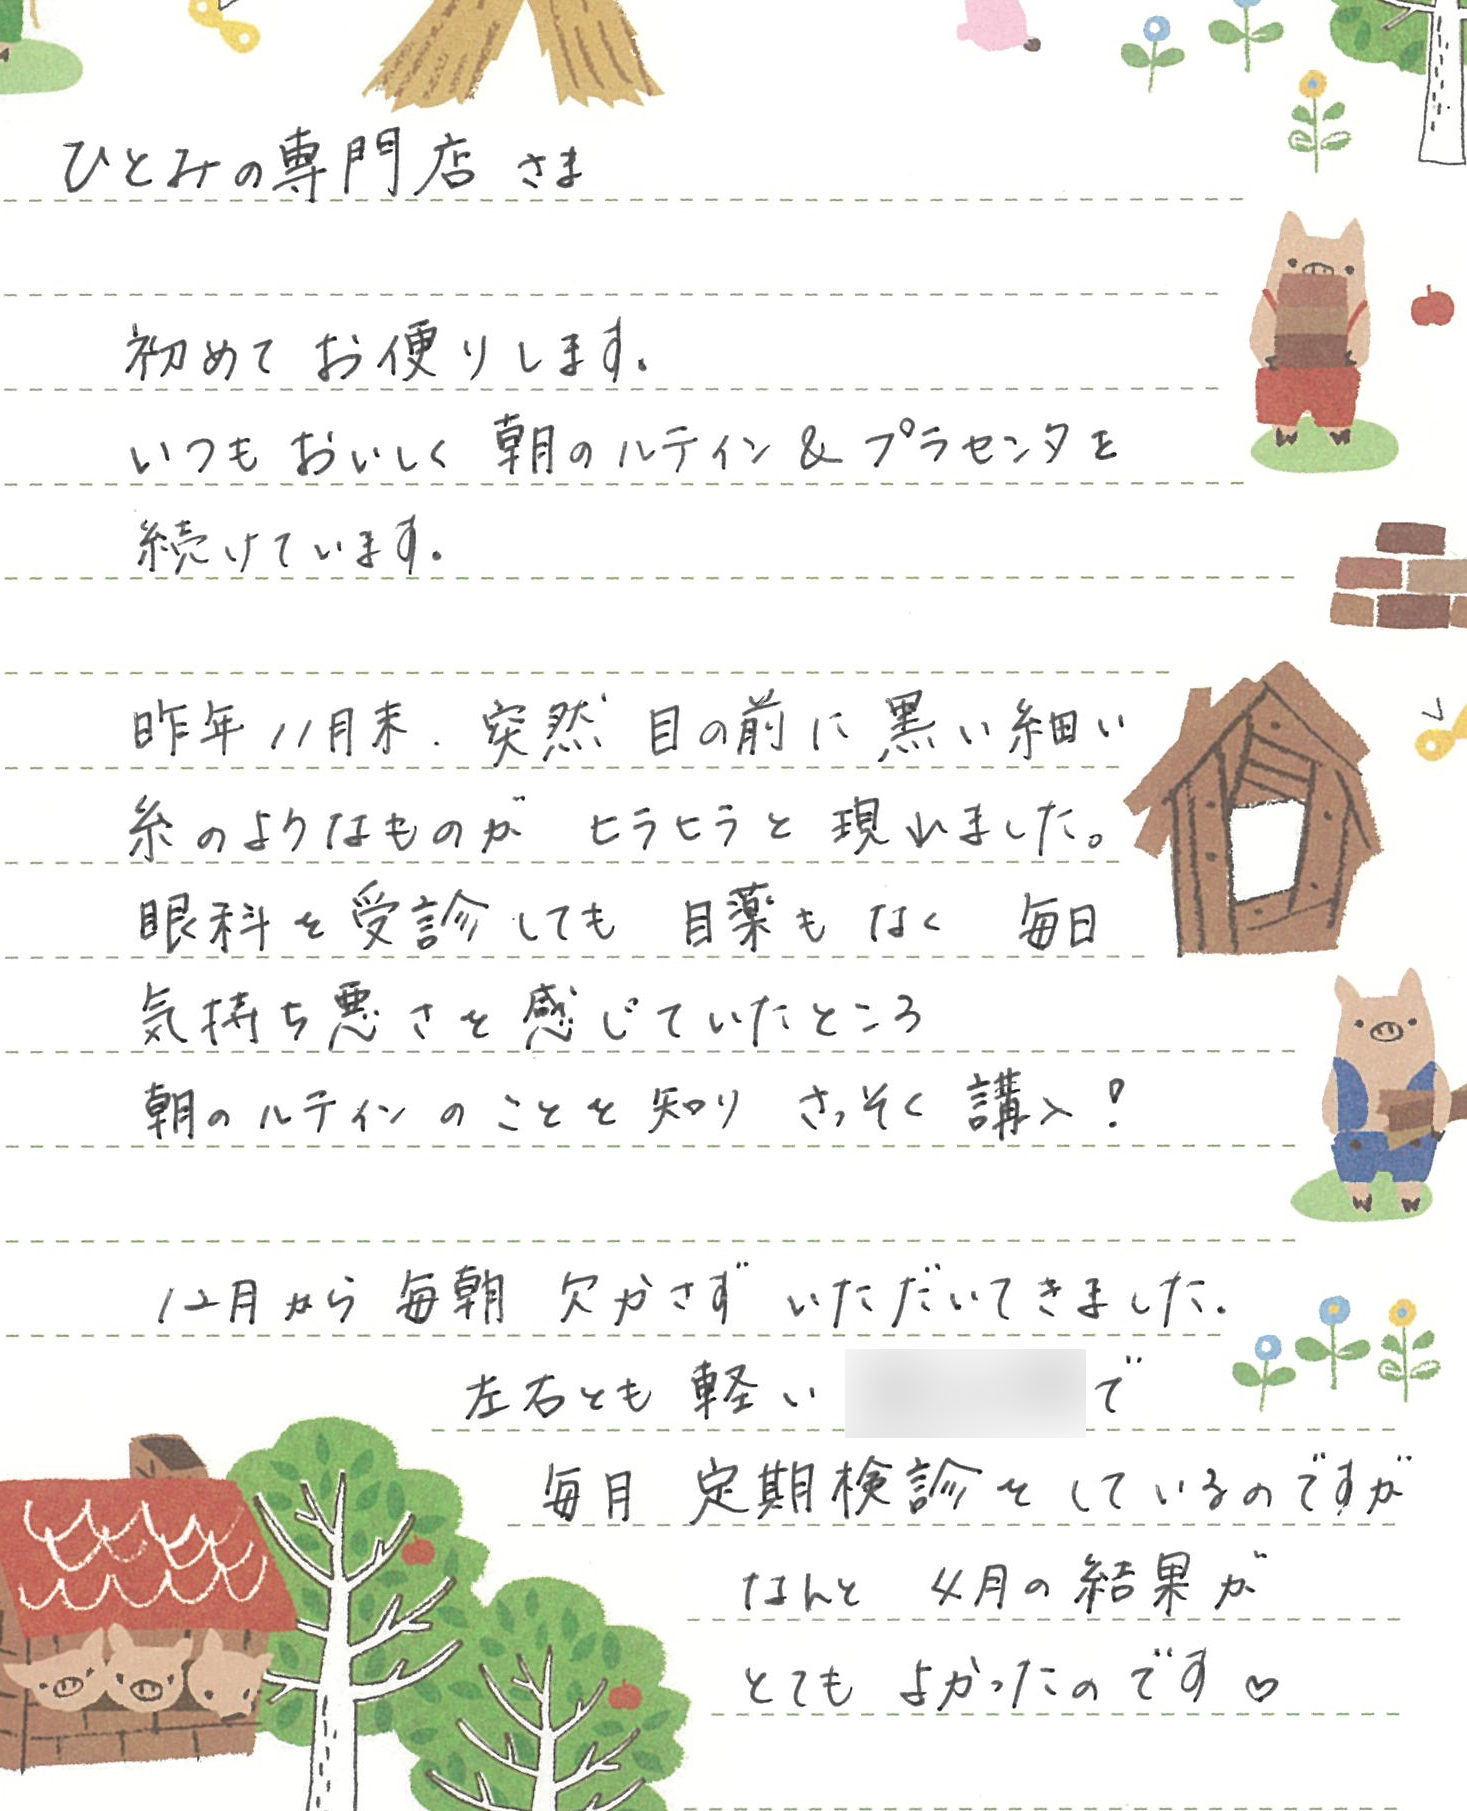 ひとみの専門店 さま
初めて お便りします.
いつも おいしく 朝のルティン & プラセンタを
続けています.
昨年11月末. 突然 目の前に 黒い細い
糸のようなものが ヒラヒラと 現れました。
眼科を受診しても 目薬も なく 毎日
気持ち悪さを感じていたところ
朝のルティンのことを知り さっそく 講入!
12月から 毎朝 欠かさず いただいてきました.
左右とも 軽い で
毎月 定期検診をしているのですが
なんと 4月の結果が
とても よかったのです♡